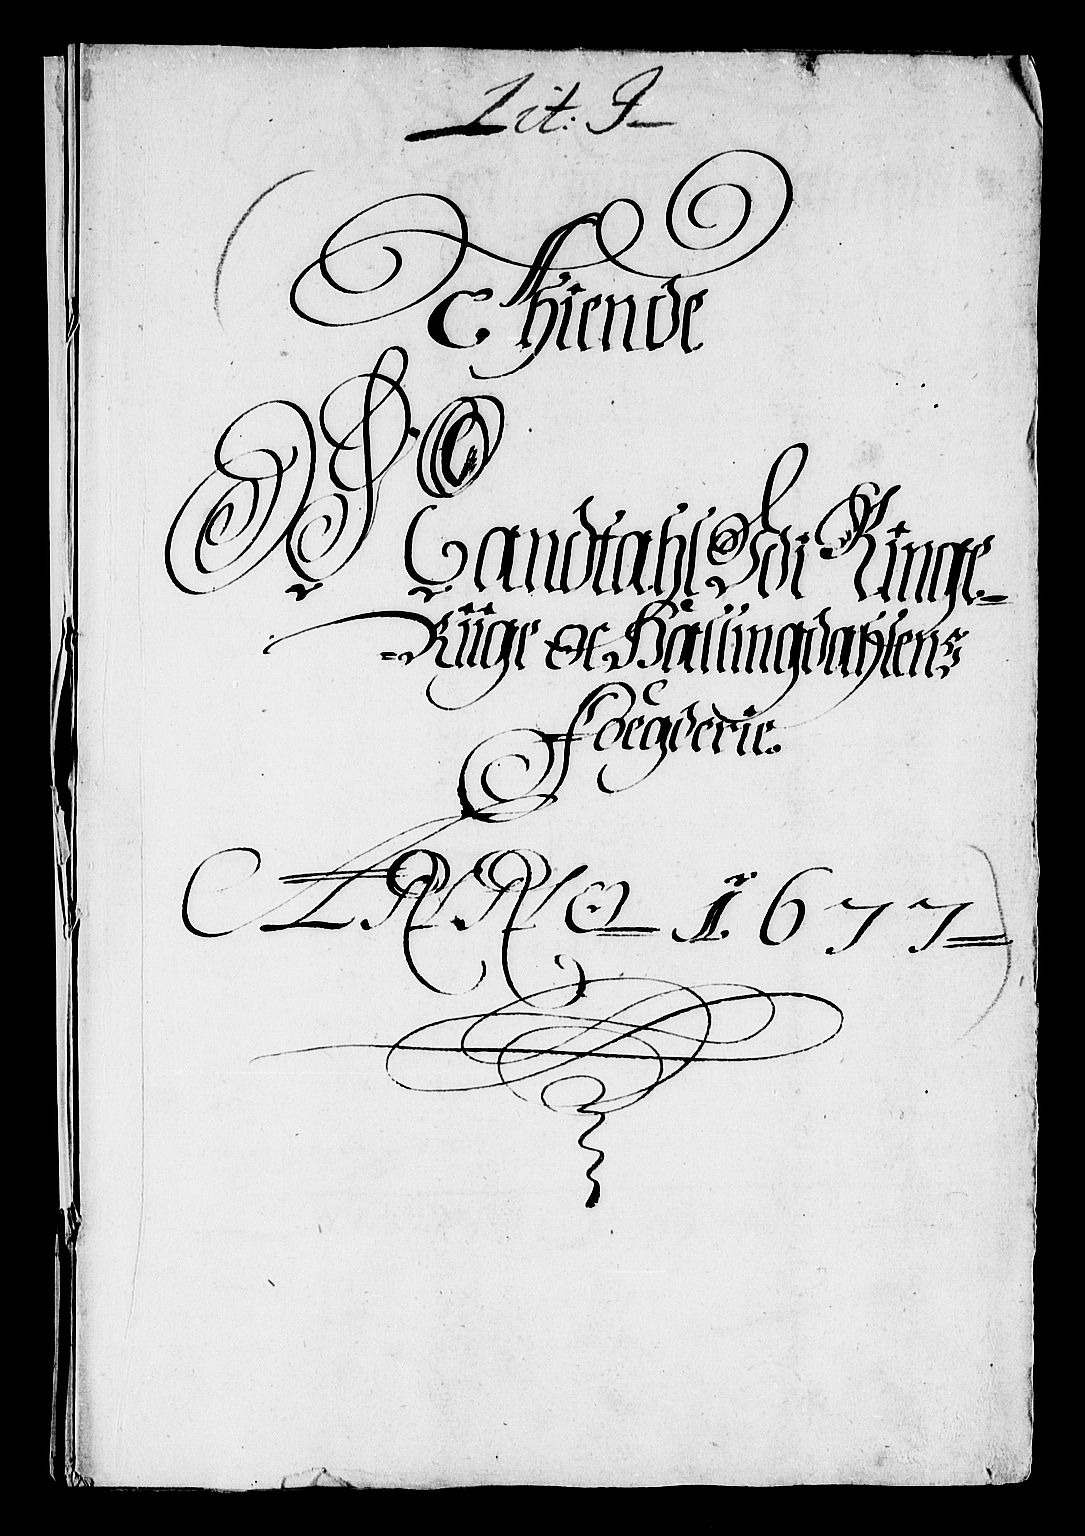 Lit: I
Thiende
Mandtahl Udi Ringe-
-Riige oc Hallingdahlens
Foegderie.
ANNO 1677